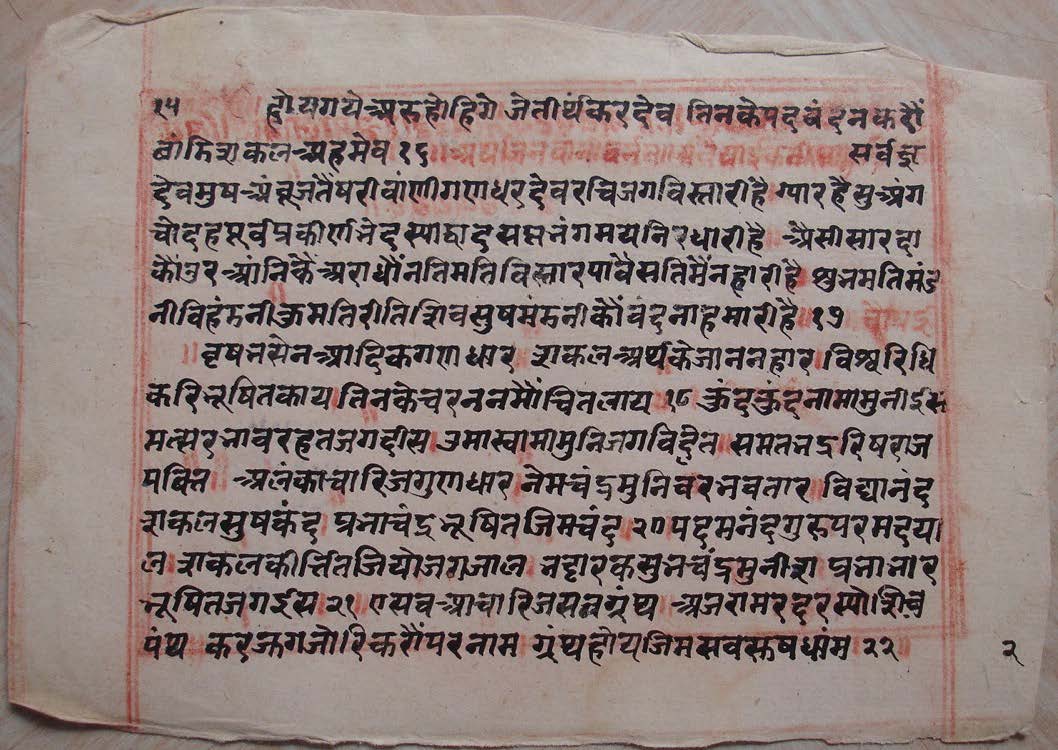 १५ होय गये अरु होहिगे जे तीर्थंकर देव तिनके पद वंदन करौं
सर्वज्ञ
देव मुष अंबुज तैं षरी वांणी गणधर देव रचि जग विस्तारी है ग्यारहै सु अंग
चोदह पूर्व प्रकीर्ण भेद स्याद्वाद सप्तभंगमय निरधारी है असी सारदा
कौं उर आंनिकै अराधौं भति मति विस्तार पावै सति मैंनहारी है शुभ मति मंड
नी विहंडनी कुमति रीति शिव सुष मंडनी कौं वंदना हमारी है १७
वृषभसेन आदिक गणधार सकल अर्थ के जाननहार विश्व रिधि
करि भूषित काय तिनके चरन नमौं चित लाय १८ कुंदकुंद नामा मुनीईस
मत्सर भाव रहत जगदीस उमास्वामी मुनि जगविदित समतभद्र रिषराज
पवित्र अलंका चारिज गुणधार नेमचंद्र मुनिवर भवतार विद्यानंद
सकल सुषकंद प्रभाचंद्र भूषित जिम चंद २० पदमनंद गुरु परम दया
ल सकलकीर्त्ति तजियो जगजाल भट्टारक सुभचंद्र मुनीस प्रभा भार
भूषित जगईस २१ ए सब आचारिज सतग्रंथ अजरामर दरस्यो शिव
पंथ कर जुग जोरि करौं परनाम ग्रंथ होय जिम सब सुषधाम २२
२